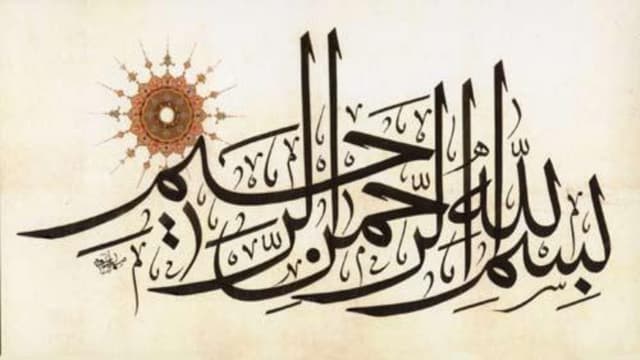 بِسْمِ اللهِ الرَّحْمنِ الرَّحيمِ